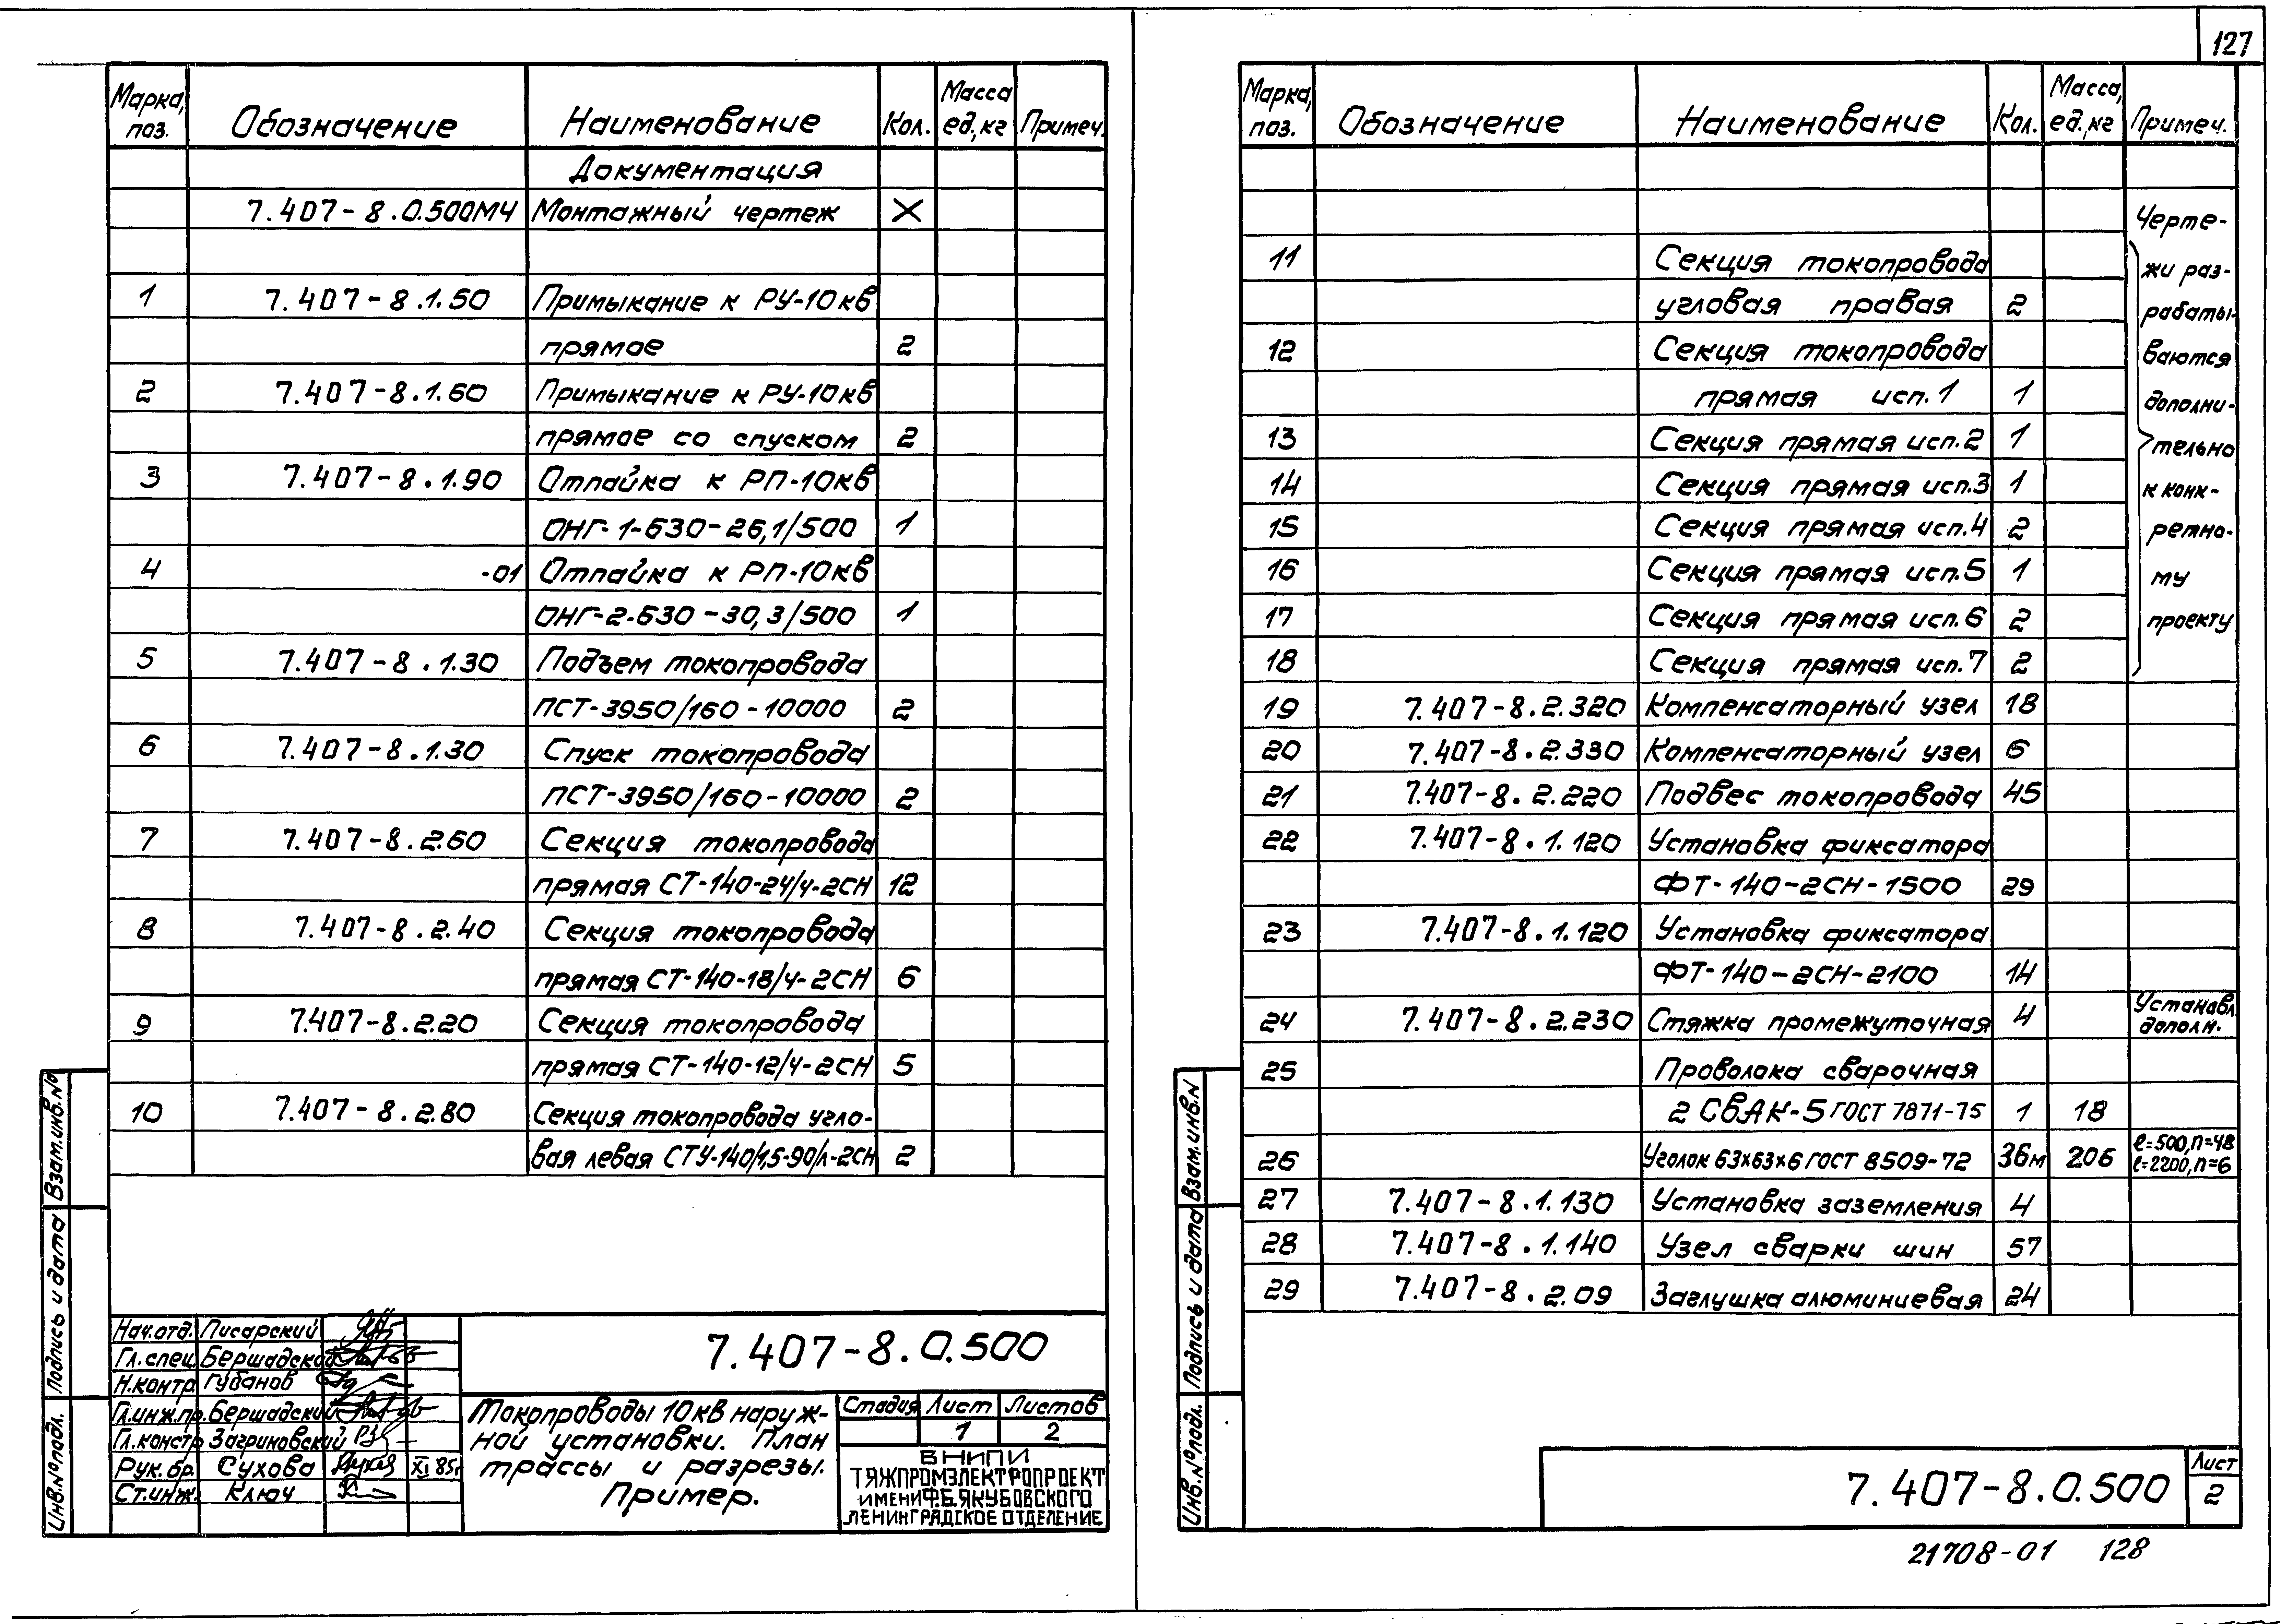 127
Марка, поз. Обозначение Наименование Кол. Масса ед,кг Примеч.
Документация
7.407-8.0.500МЧ Монтажный чертеж X
1 7.407-8.1.50 Примыкание к РУ-10кв
прямое 2
2 7.407-8.1.60 Примыкание к РУ-10кв
прямое со спуском 2
3 7.407-8.1.90 Отпайка к РП-10кв
ОНГ-1-630-26,1/500 1
4 -01 Отпайка к РП-10кв
ОНГ-2-630-30,3/500 1
5 7.407-8.1.30 Подъем токопровода
ПСТ-3950/160-10000 2
6 7.407-8.1.30 Спуск токопровода
ПСТ-3950/160-10000 2
7 7.407-8.2.60 Секция токопровода
прямая СТ-140-24/4-2СН 12
8 7.407-8.2.40 Секция токопровода
прямая СТ-140-18/4-2СН 6
9 7.407-8.2.20 Секция токопровода
прямая СТ-140-12/4-2СН 5
10 7.407-8.2.80 Секция токопровода угло-
вая левая СТУ-140/1,5-90/л-2СН 2
Взам.инв.№
Подпись и дата
Инв.№подл.
Нач.отд. Писарский
Гл.спец. Бершадский
Н.контр. Губанов
Гл.инж.пр. Бершадский
Гл.констр. Загриновский
Рук.бр. Сухова XI 85г
Ст.инж. Ключ
7.407-8.0.500
Токопроводы 10кв наруж-
ной установки. План
трассы и разрезы.
Пример.
Стадия Лист Листов
1 2
ВНИПИ
ТЯЖПРОМЭЛЕКТРОПРОЕКТ
ИМЕНИ Ф.Б.ЯКУБОВСКОГО
ЛЕНИНГРАДСКОЕ ОТДЕЛЕНИЕ
Марка, поз. Обозначение Наименование Кол. Масса, ед.,кг Примеч.
Черте-
жи раз-
рабаты-
ваются
дополни-
тельно
к конк-
ретно-
му
проекту
11 Секция токопровода
угловая правая 2
12 Секция токопровода
прямая исп.1 1
13 Секция прямая исп.2 1
14 Секция прямая исп.3 1
15 Секция прямая исп.4 2
16 Секция прямая исп.5 1
17 Секция прямая исп.6 2
18 Секция прямая исп.7 2
19 7.407-8.2.320 Компенсаторный узел 18
20 7.407-8.2.330 Компенсаторный узел 6
21 7.407-8.2.220 Подвес токопровода 45
22 7.407-8.1.120 Установка фиксатора
ФТ-140-2СН-1500 29
23 7.407-8.1.120 Установка фиксатора
ФТ-140-2СН-2100 14
24 7.407-8.2.230 Стяжка промежуточная 4 Установл. дополн.
25 Проволока сварочная
2 СВАК-5 ГОСТ 7871-75 1 18
26 Уголок 63х63х6 ГОСТ 8509-72 36м 206 ℓ=500,n=48 ℓ=2200,n=6
27 7.407-8.1.130 Установка заземления 4
28 7.407-8.1.140 Узел сварки шин 57
29 7.407-8.2.09 Заглушка алюминиевая 24
Взам.инв.N
Подпись и дата
Инв.№подл.
7.407-8.0.500
Лист
2
21708-01 128